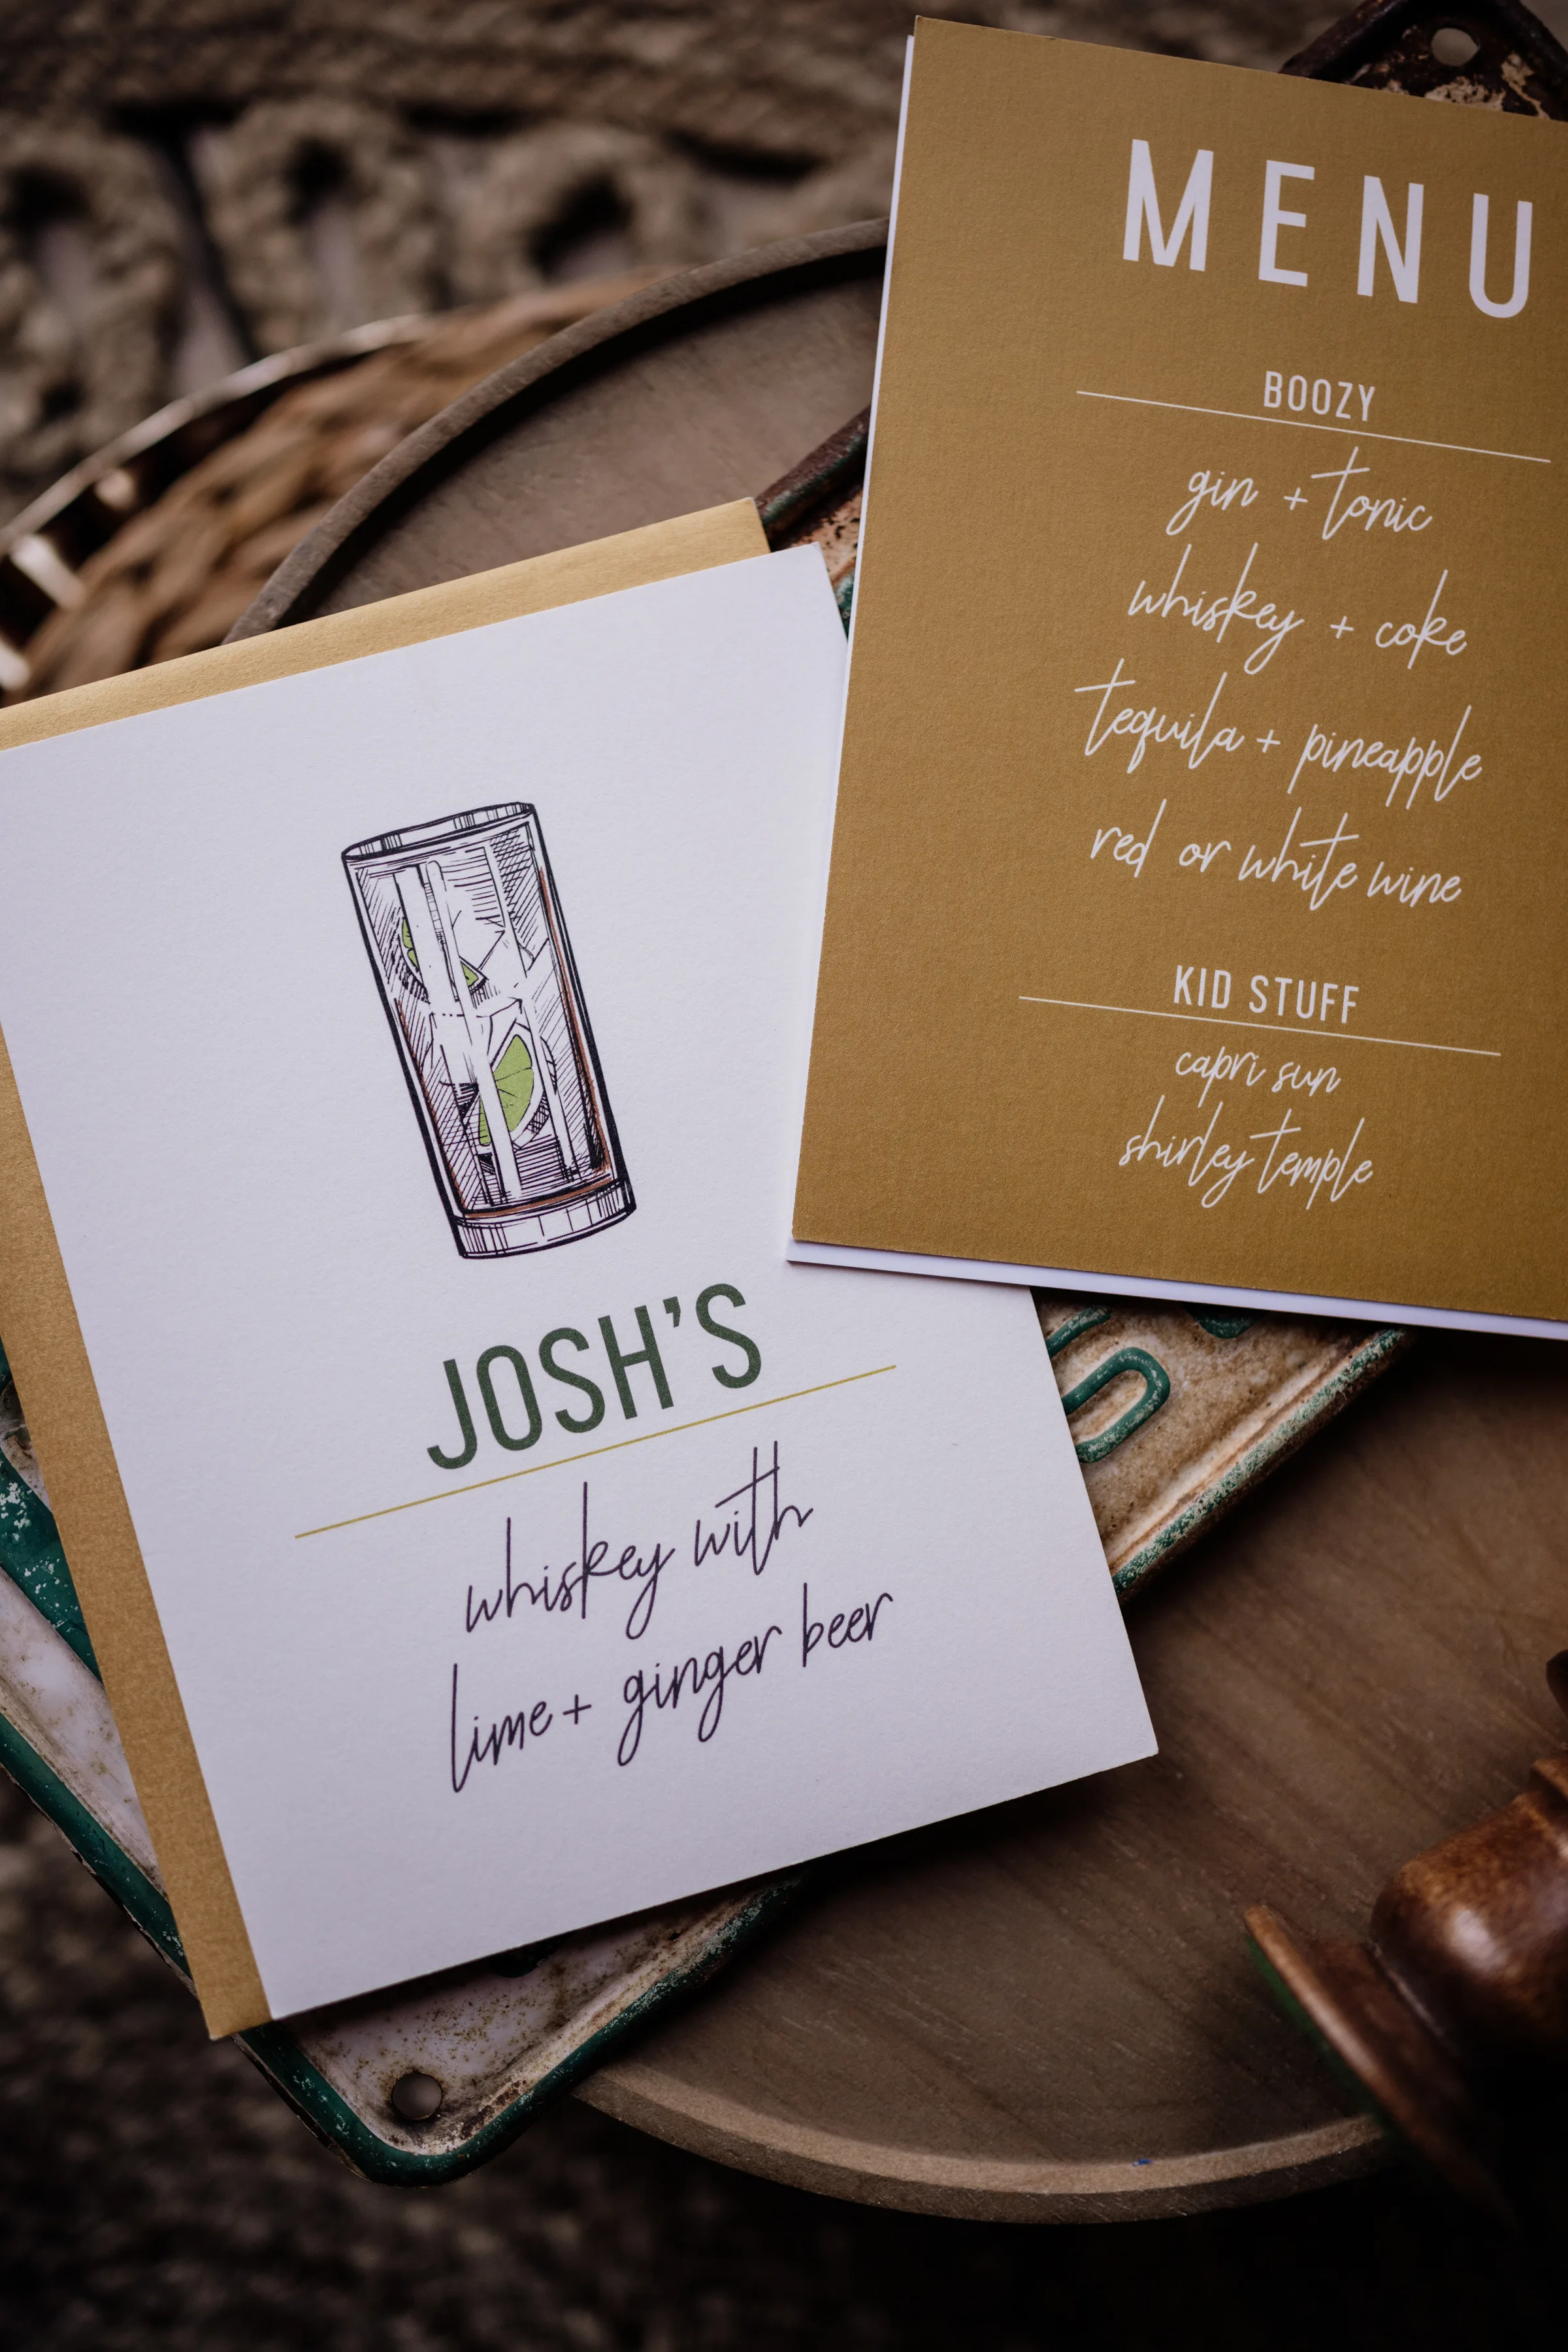 JOSH'S
whiskey with
lime + ginger beer
MENU
BOOZY
gin + tonic
whiskey + coke
tequila + pineapple
red or white wine
KID STUFF
capri sun
shirley temple